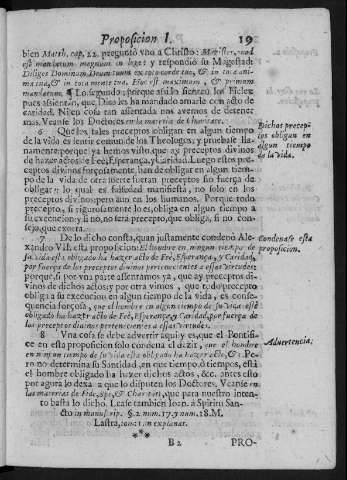 Proposicion I. 19
bien Matth. cap. 22. preguntò vno à Christo: Magister, quod
est mandatum magnum in lege? y respondiò su Magestad:
Diliges Dominum Deum tuum ex toto corde tuo, & in tota ani-
ma tua, & in tota mente tua. Hoc est maximum, & primum
mandatum. ¶ Lo segundo; porque assi lo sienten los Fieles,
pues assientan, que Dios les ha mandado amarle con acto de
caridad. Ni en cosa tan assentada nos avemos de detener
mas. Veanse los Doctores en la materia de Charitate.
6 Que los tales preceptos obligan en algun tiempo
de la vida es sentir comun de los Theologos; y pruebase lla-
namente; porque ya hemos visto, que ay preceptos divinos
de hazer actos de Feè, Esperança, y Caridad. Luego estos pre-
ceptos divinos forçosamente, han de obligar en algun tiem-
po de la vida de otra suerte fueran preceptos sin fuerça de
obligar; lo qual es falsedad manifiesta, no solo en los
preceptos divinos, pero aun en los humanos. Porque todo
precepto, si rigurosamente lo es, obliga en algun tiempo à
su execucion; y si no, no serà precepto, que obliga, si no con-
sejo, que exorta.
Dichos precep-
tos obligan en
algun tiempo
de la vida.
7 De lo dicho consta, quan justamente condenò Ale-
xandro VII. esta proposicion: El hombre en ningun tiempo de
su vida està obligado ha hazer acto de Feè, Esperança, y Caridad,
por fuerça de los preceptos divinos pertenecientes à estas virtudes;
porque, si por vna parte assentamos ya, que ay preceptos di-
vinos de dichos actos; y por otra vimos, que todo precepto
obliga à su execucion en algun tiempo de la vida, es con-
sequencia forçosa, que el hombre en algun tiempo de su vida està
obligado ha hazer acto de Feè, Esperança, y Caridad, por fuerça de
los preceptos divinos pertenecientes à estas virtudes.
Condenase esta
proposicion.
8 Vna cosa se debe advertir aqui y es, que el Pontifi-
ce en esta proposicion solo condena el dezir, que el hombre
en ningun tiempo de su vida està obligado ha hazer acto, &c. Pe-
ro no determina su Santidad, en que tiempo, ò tiempos, està
el hombre obligado ha hazer dichos actos, &c. antes esto
por agora lo dexa a que lo disputen los Doctores. Veanse en
las materias de Fide, Spe, & Charitate, que para nuestro inten-
to basta lo dicho. Lease tambien Ioan. à Spiritu San-
cto in manuscrip. §. 2. num. 17. y num. 18. M.
Lastra, tom: 1. in explanat.
Advertencia.
B 2 PRO-